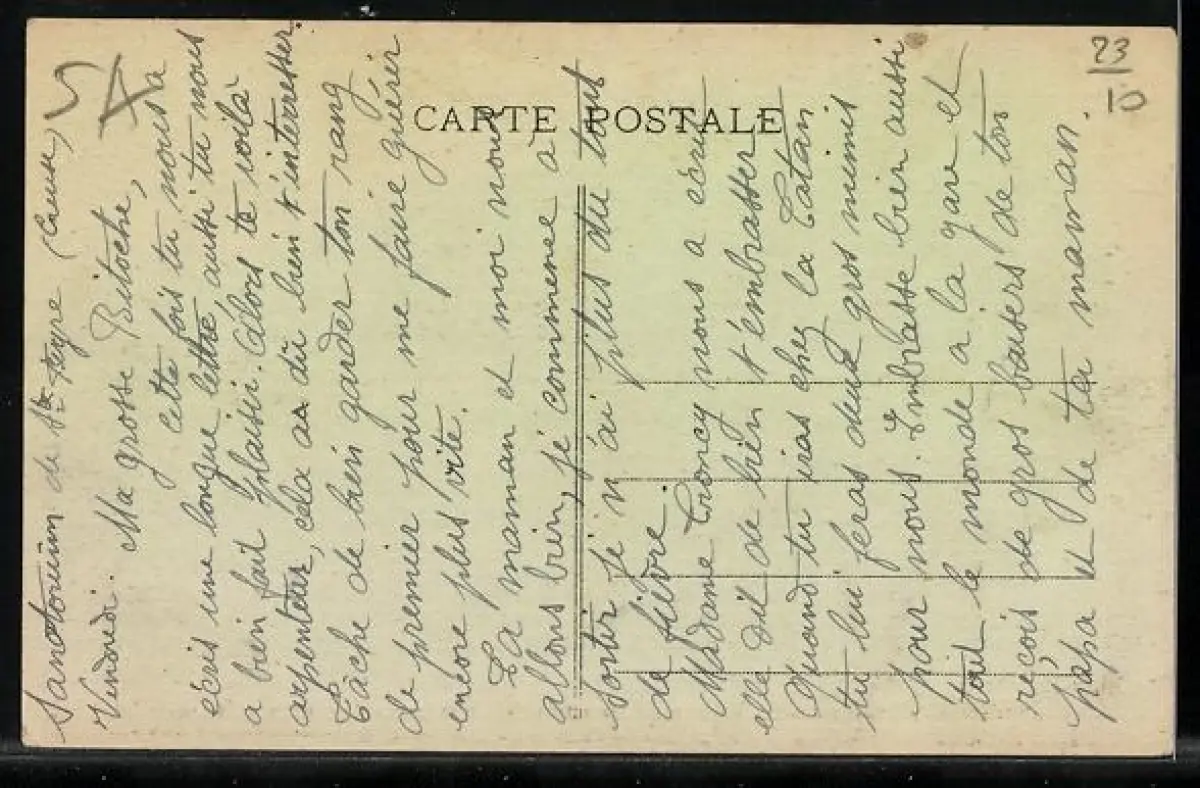 CARTE POSTALE
23
10
Sanatorium de Ste Feyre (Creuse)
Vendredi. Ma grosse Bitoche,
Cette fois tu nous a
écris une longue lettre aussi tu nous
a bien fait plaisir. Alors te voilà
arpenteur, cela a dû bien t'interresser.
Tâche de bien garder ton rang
de premier pour me faire guérir
encore plus vite.
La maman et moi nous
allons bien, je commence à
sortir je n'ai plus du tout
de fièvre.
Madame Troncy nous a écrit
elle dit de bien t'embrasser
Quand tu iras chez la Tatan
tu lui feras deux gros mimis
pour nous. Embrasse bien aussi
tout le monde à la gare et
reçois de gros baisers de ton
papa et de ta maman.